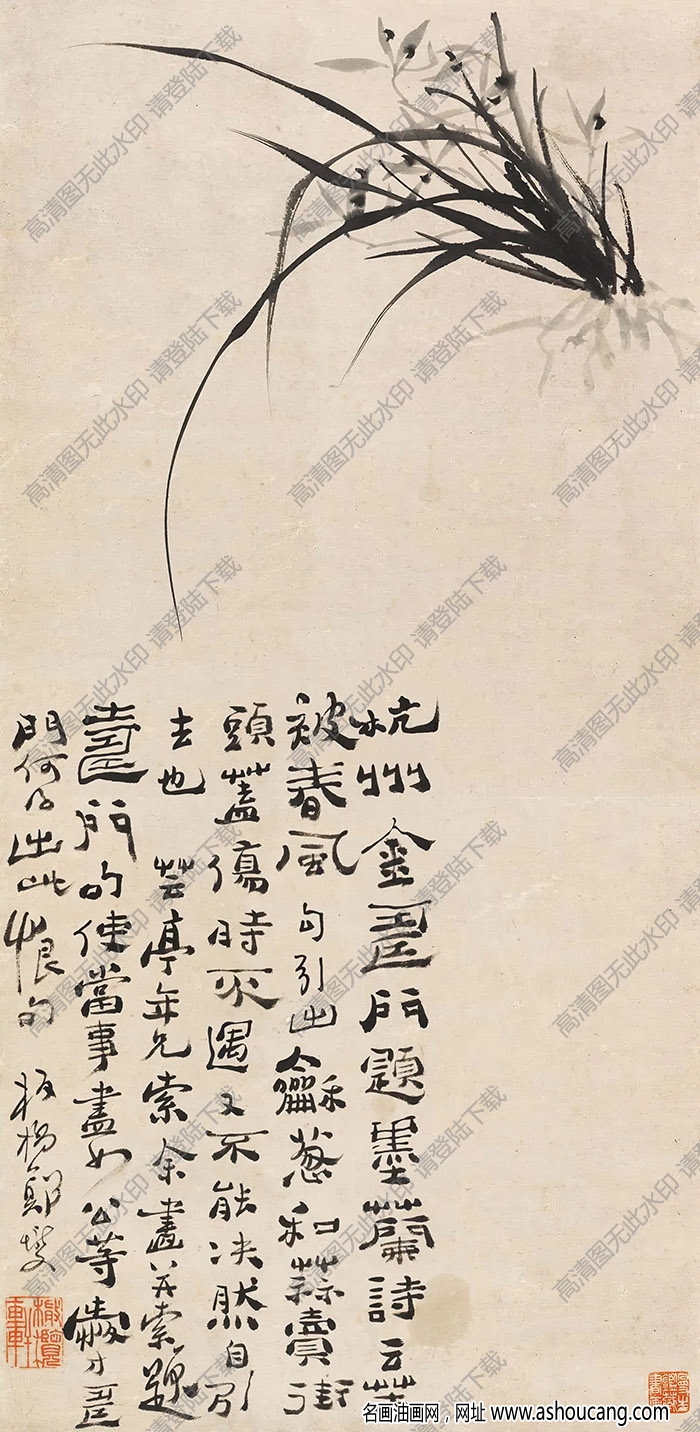 杭州金壽門題墨蘭詩云苦
被春風勾引出龢葱和蒜賣街
頭蓋傷時不遇又不能决然自引
去也 芸亭年兄索余畫并索題
壽門句使當事盡如公等愛才壽
門何乃出此恨句 板橋鄭燮
橄欖軒
高清图无此水印 请登陆下载
名画油画网，网址 www.ashoucang.com